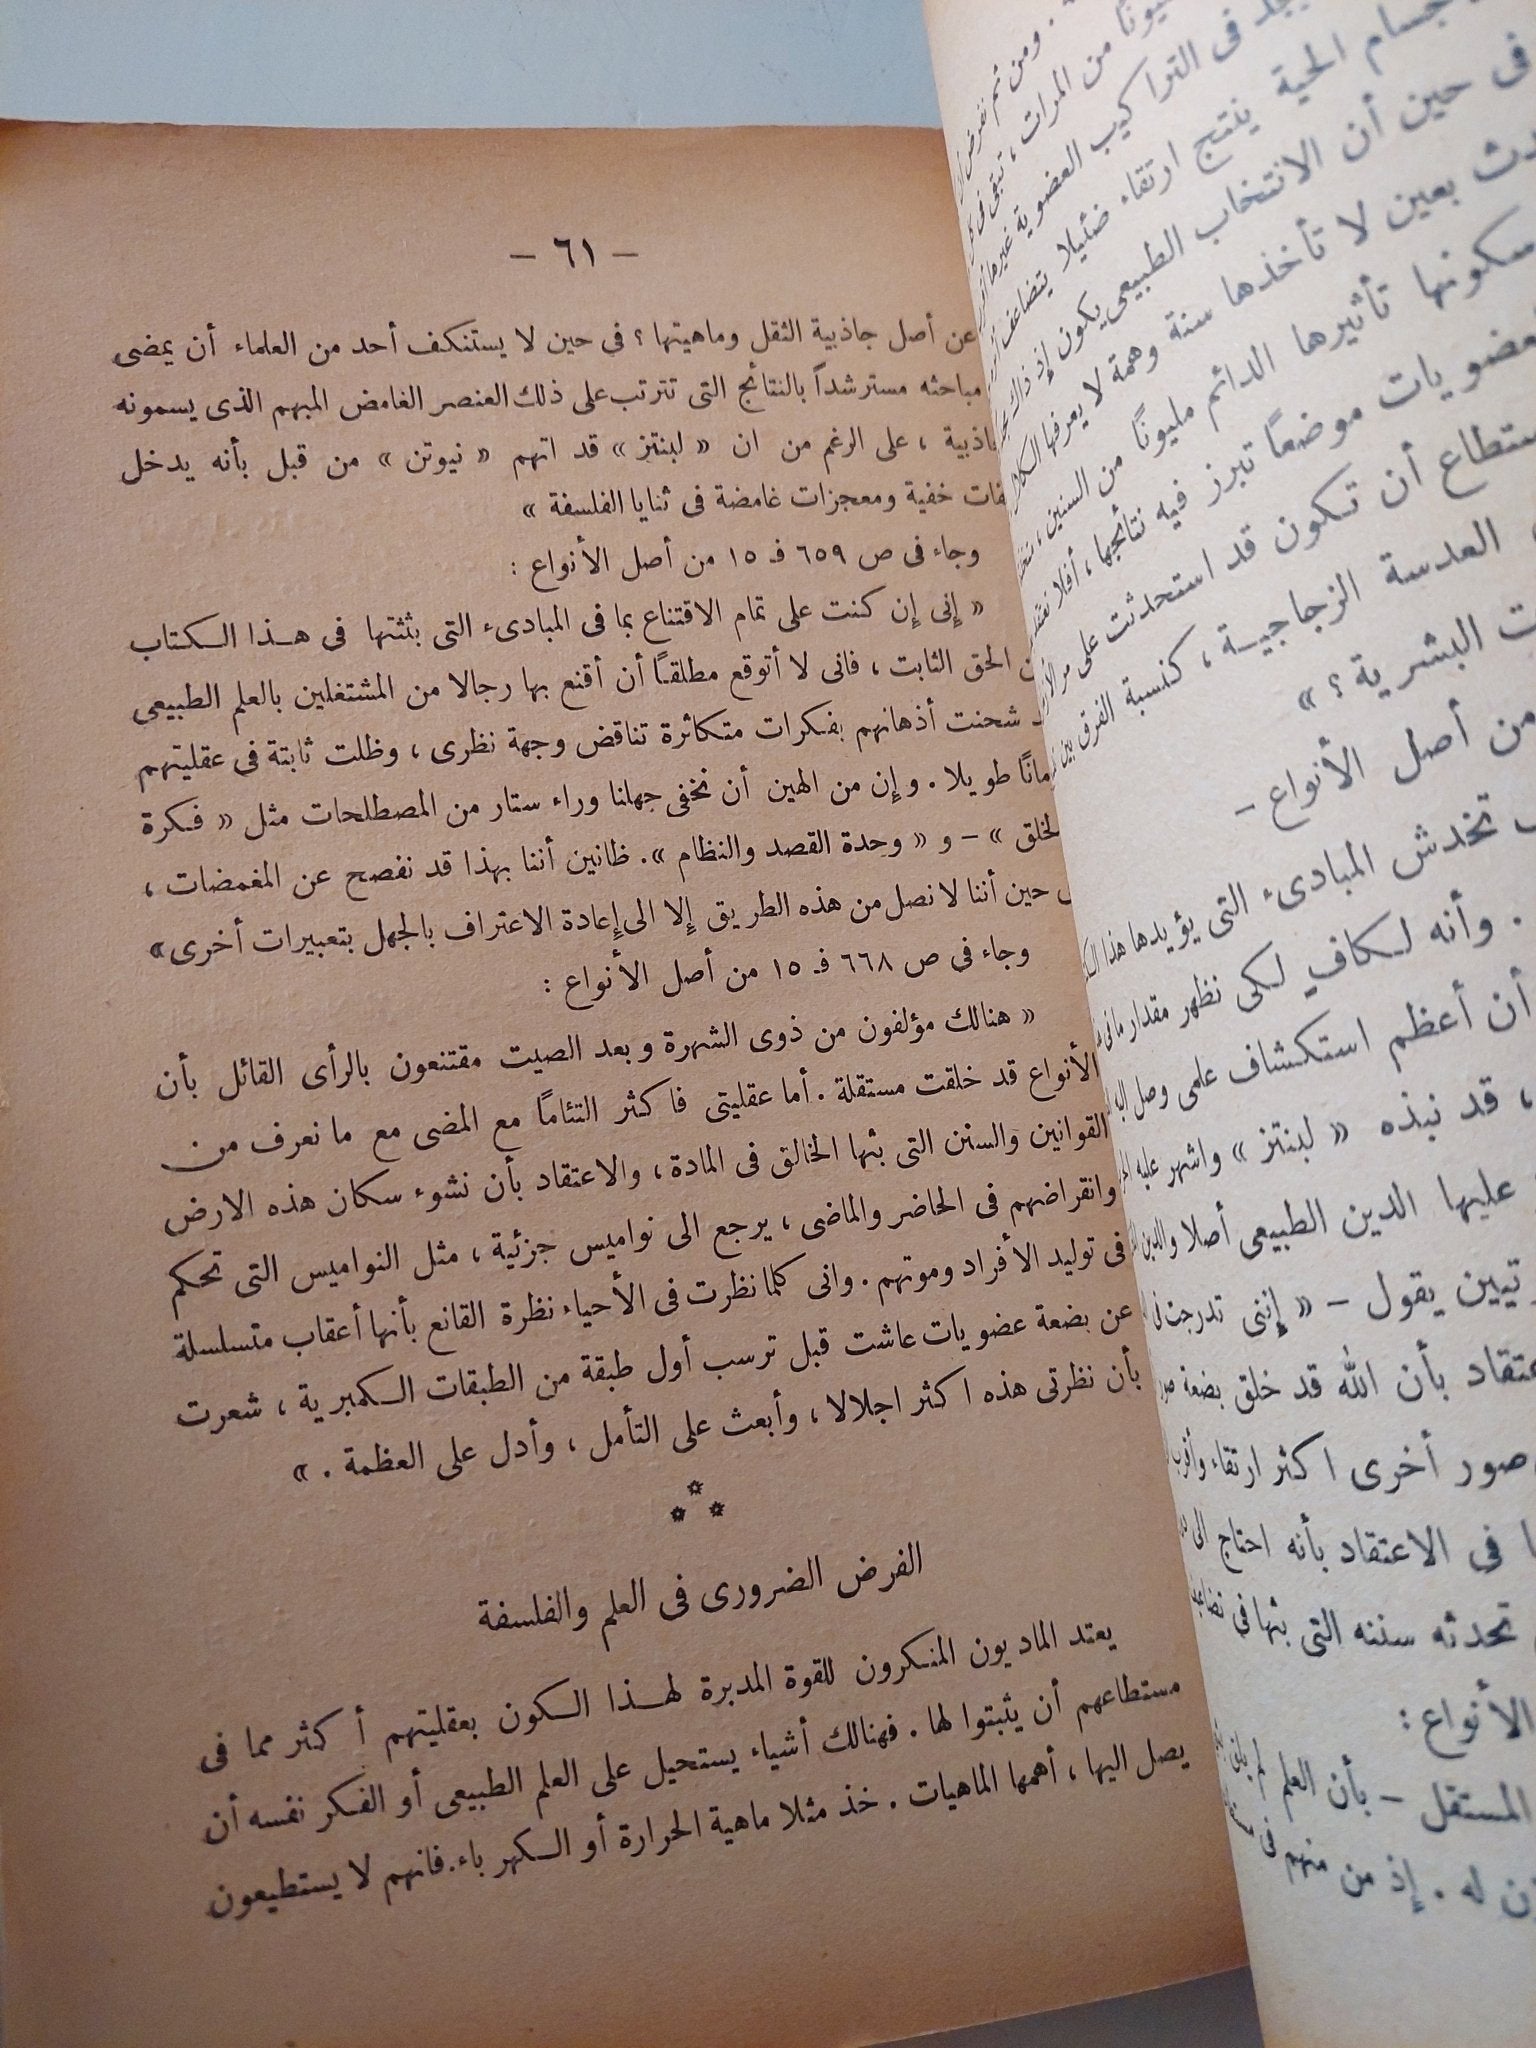 . ومن ثم نفرض
من المرات ، تبقى فى
فى التراكيب العضوية غير
الحية ينتج ارتقاء ضئيلا يتضاعف
فى حين أن الانتخاب الطبيعى يكون إذ ذاك
بعين لا تأخذها سنة وهمة لا يعرفها
سكونها تأثيرها الدائم مليونًا من السنين ،
موضعًا تبرز فيه نتائجها ، أفلا نعتقد
أن تكون قد استحدثت على مر
العدسة الزجاجية ، كنسبة الفرق بين
البشرية ؟ »
من أصل الأنواع —
تخدش المبادىء التى يؤيدها هذا
. وأنه لكافي لكى نظهر مقدار
أن أعظم استكشاف علمى وصل إليه
، قد نبذه « لبنتز » واشهر عليه
عليها الدين الطبيعى أصلا والدين
يقول — « إننى تدرجت فى
بأن الله قد خلق بضعة
صور أخرى اكثر ارتقاء وأقرب
فى الاعتقاد بأنه احتاج الى
تحدثه سننه التى بثها فى
الأنواع :
المستقل — بأن العلم لم
له . إذ من منهم فى
— ٦١ —
عن أصل جاذبية الثقل وماهيتها ؟ فى حين لا يستنكف أحد من العلماء أن يمضى
مباحثه مسترشداً بالنتائج التى تترتب على ذلك العنصر الغامض المبهم الذى يسمونه
، على الرغم من ان « لبنتز » قد اتهم « نيوتن » من قبل بأنه يدخل
خفية ومعجزات غامضة فى ثنايا الفلسفة »
وجاء فى ص ٦٥٩ ف ١٥ من أصل الأنواع :
« إنى إن كنت على تمام الاقتناع بما فى المبادىء التى بثثتها فى هذا الكتاب
الحق الثابت ، فانى لا أتوقع مطلقًا أن أقنع بها رجالا من المشتغلين بالعلم الطبيعى
شحنت أذهانهم بفكرات متكاثرة تناقض وجهة نظرى ، وظلت ثابتة فى عقليتهم
طويلا . وإن من الهين أن نخفى جهلنا وراء ستار من المصطلحات مثل « فكرة
الخلق » — و « وحدة القصد والنظام ». ظانين أننا بهذا قد نفصح عن المغمضات ،
حين أننا لا نصل من هذه الطريق إلا الى إعادة الاعتراف بالجهل بتعبيرات أخرى »
وجاء فى ص ٦٦٨ ف ١٥ من أصل الأنواع :
« هنالك مؤلفون من ذوى الشهرة وبعد الصيت مقتنعون بالرأى القائل بأن
الأنواع قد خلقت مستقلة . أما عقليتى فاكثر التئامًا مع المضى مع ما نعرف من
القوانين والسنن التى بثها الخالق فى المادة ، والاعتقاد بأن نشوء سكان هذه الارض
وانقراضهم فى الحاضر والماضى ، يرجع الى نواميس جزئية ، مثل النواميس التى تحكم
فى توليد الأفراد وموتهم . وانى كلما نظرت فى الأحياء نظرة القانع بأنها أعقاب متسلسلة
عن بضعة عضويات عاشت قبل ترسب أول طبقة من الطبقات الكمبرية ، شعرت
بأن نظرتى هذه اكثر اجلالا ، وأبعث على التأمل ، وأدل على العظمة . »
الفرض الضرورى فى العلم والفلسفة
يعتد الماديون المنكرون للقوة المدبرة لهذا الكون بعقليتهم أكثر مما فى
مستطاعهم أن يثبتوا لها . فهنالك أشياء يستحيل على العلم الطبيعى أو الفكر نفسه أن
يصل اليها ، أهمها الماهيات . خذ مثلا ماهية الحرارة أو الكهرباء . فانهم لا يستطيعون